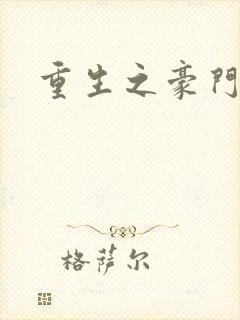 重生之豪門
格薩尔